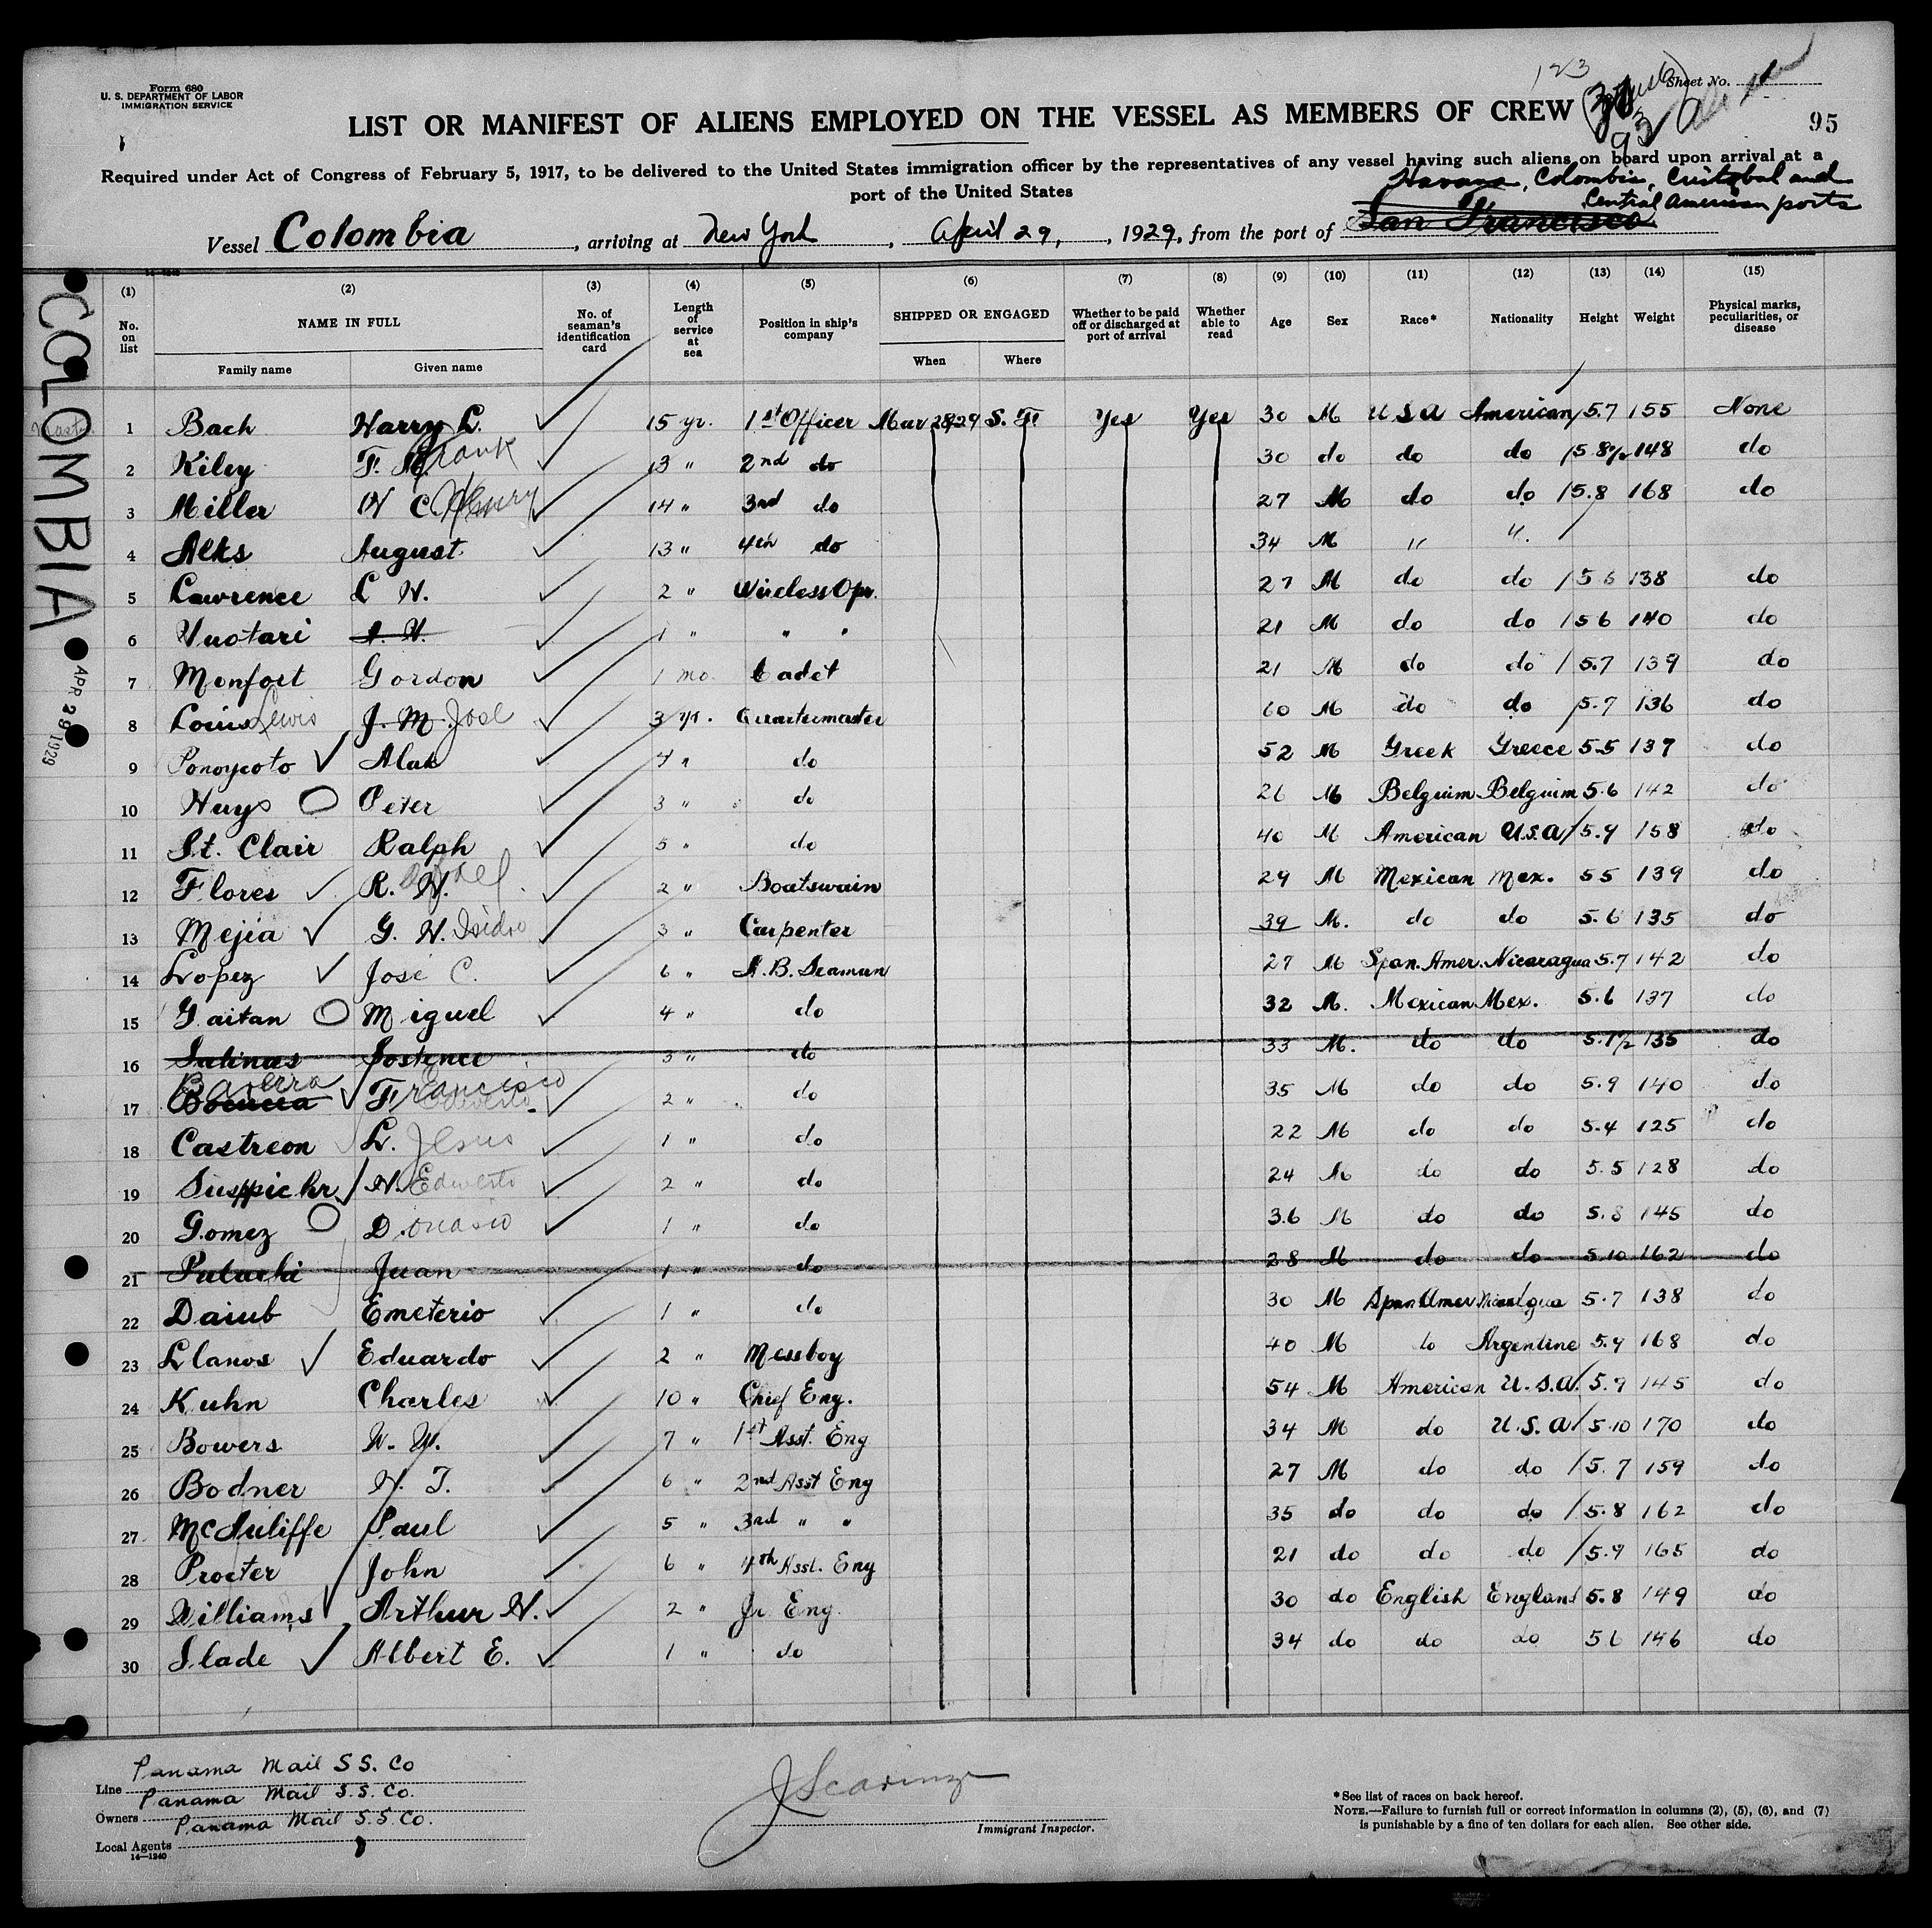 Form 680
U. S. DEPARTMENT OF LABOR
IMMIGRATION SERVICE
123
Sheet No.
LIST OR MANIFEST OF ALIENS EMPLOYED ON THE VESSEL AS MEMBERS OF CREW
93
95
Required under Act of Congress of February 5, 1917, to be delivered to the United States immigration officer by the representatives of any vessel having such aliens on board upon arrival at a
port of the United States
Havana, Colombia, Cristobal and
Central American ports
Vessel Colombia, arriving at New York, April 29, 1929, from the port of San Francisco
COLOMBIA
APR 29 1929
(1) (2) (3) (4) (5) (6) (7) (8) (9) (10) (11) (12) (13) (14) (15)
No. on list NAME IN FULL Family name Given name No. of seaman's identification card Length of service at sea Position in ship's company SHIPPED OR ENGAGED When Where Whether to be paid off or discharged at port of arrival Whether able to read Age Sex Race* Nationality Height Weight Physical marks, peculiarities, or disease
1 Bach Harry L. 15 yr. 1st Officer Mar 28/29 S. F. Yes Yes 30 M USA American 5.7 155 None
2 Kiley F. Frank 13 " 2nd do 30 do do do 5.8½ 148 do
3 Miller H C Henry 14 " 3rd do 27 M do do 5.8 168 do
4 Alks August 13 " 4th do 34 M " "
5 Lawrence L H. 2 " Wireless Opr. 27 M do do 5 6 138 do
6 Vuotari A. H. 1 " " " 21 M do do 5 6 140 do
7 Monfort Gordon 1 mo. Cadet 21 M do do 5.7 139 do
8 Louis Lewis J. M. Jose 3 yr. Quartermaster 60 M do do 5.7 136 do
9 Ponoycoto Alak 4 " do 52 M Greek Greece 5.5 137 do
10 Huys Peter 3 " do 26 M Belguim Belguim 5.6 142 do
11 St. Clair Ralph 5 " do 40 M American U.S.A 5.9 158 do
12 Flores R. H. 2 " Boatswain 29 M Mexican Mex. 5 5 139 do
13 Mejia G. H. Isidro 3 " Carpenter 39 M. do do 5.6 135 do
14 Lopez José C. 6 " A. B. Seaman 27 M Span. Amer. Nicaragua 5.7 142 do
15 Gaitan Miguel 4 " do 32 M. Mexican Mex. 5.6 137 do
16 Salinas 3 " do 33 M. do do 5.7½ 135 do
17 Francisco 2 " do 35 M do do 5.9 140 do
18 Castreon L. Jesus 1 " do 22 M do do 5.4 125 do
19 Susppichr H. Edwerto 2 " do 24 M do do 5.5 128 do
20 Gomez D. onasio 1 " do 36 M do do 5.8 145 do
21 Putuchi Juan 1 " do 28 M do do 5.10 162 do
22 Daiub Emeterio 1 " do 30 M Span Amer Nicaragua 5.7 138 do
23 Llanos Eduardo 2 " Messboy 40 M do Argentine 5.9 168 do
24 Kuhn Charles 10 " Chief Eng. 54 M American U.S.A. 5.9 145 do
25 Bowers W. W. 7 " 1st Asst. Eng 34 M do U.S.A 5.10 170 do
26 Bodner H. T. 6 " 2nd Asst Eng 27 M do do 5.7 159 do
27 McAuliffe Paul 5 " 3rd " " 35 do do do 5.8 162 do
28 Procter John 6 " 4th Asst. Eng 21 do do do 5.9 165 do
29 Williams Arthur H. 2 " Jr Eng. 30 do English England 5.8 149 do
30 Slade Albert E. 1 " do 34 do do do 5 6 146 do
Line Panama Mail S S. Co
Owners Panama Mail S. S. Co.
Local Agents Panama Mail S. S. Co.
14—1240
Immigrant Inspector.
*See list of races on back hereof.
NOTE.—Failure to furnish full or correct information in columns (2), (5), (6), and (7)
is punishable by a fine of ten dollars for each alien. See other side.